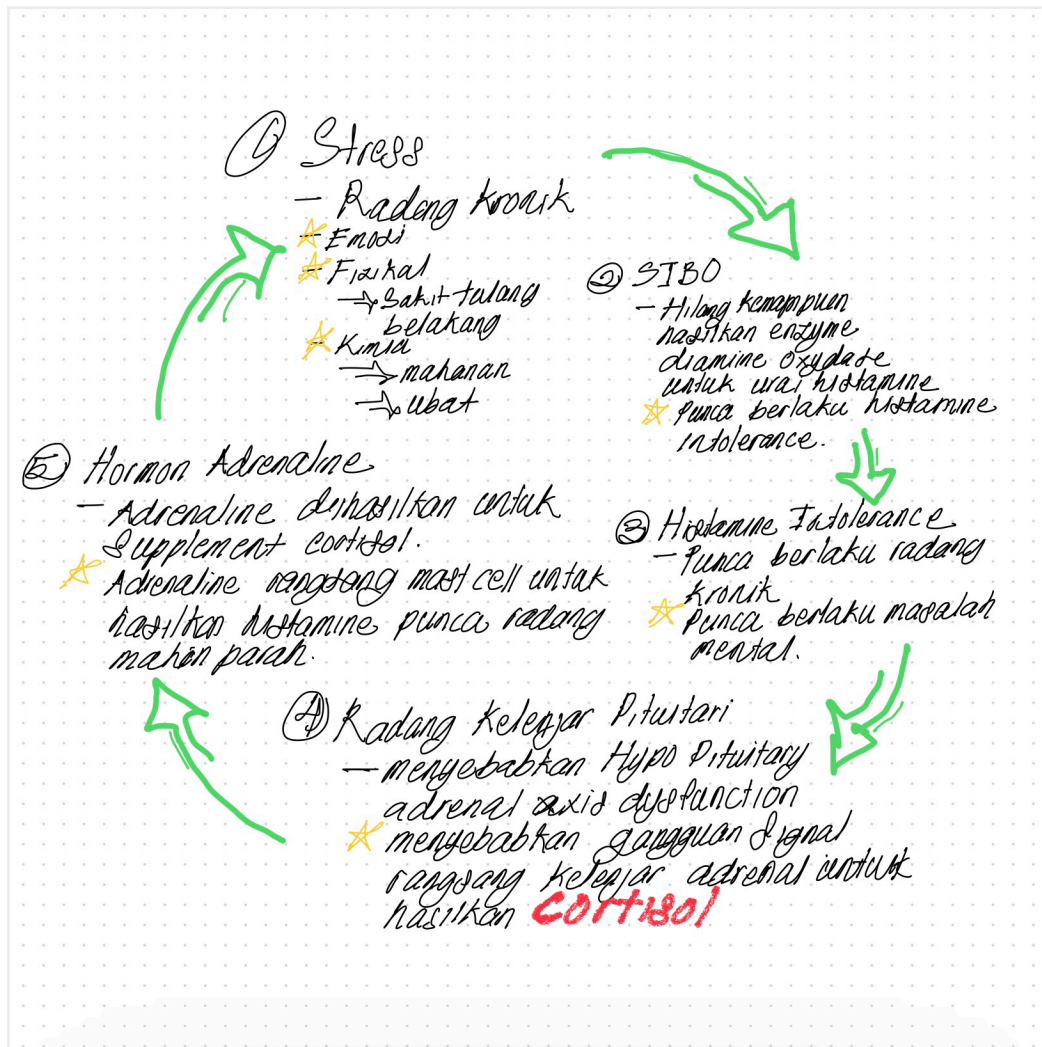 ① Stress
- Radang Kronik
- Emosi
- Fizikal
→ Sakit tulang
belakang
- Kimia
→ makanan
→ ubat
② SIBO
- Hilang kemampuan
hasilkan enzyme
diamine oxydase
untuk urai histamine
Punca berlaku histamine
intolerance.
③ Histamine Intolerance
- Punca berlaku radang
kronik
Punca berlaku masalah
mental.
④ Radang Kelenjar Pituitari
- menyebabkan Hypo Pituitary
adrenal axis dysfunction
menyebabkan gangguan signal
rangsang kelenjar adrenal untuk
hasilkan cortisol
⑤ Hormon Adrenaline
- Adrenaline dihasilkan untuk
Supplement cortisol.
Adrenaline rangsang mast cell untuk
hasilkan histamine punca radang
makin parah.